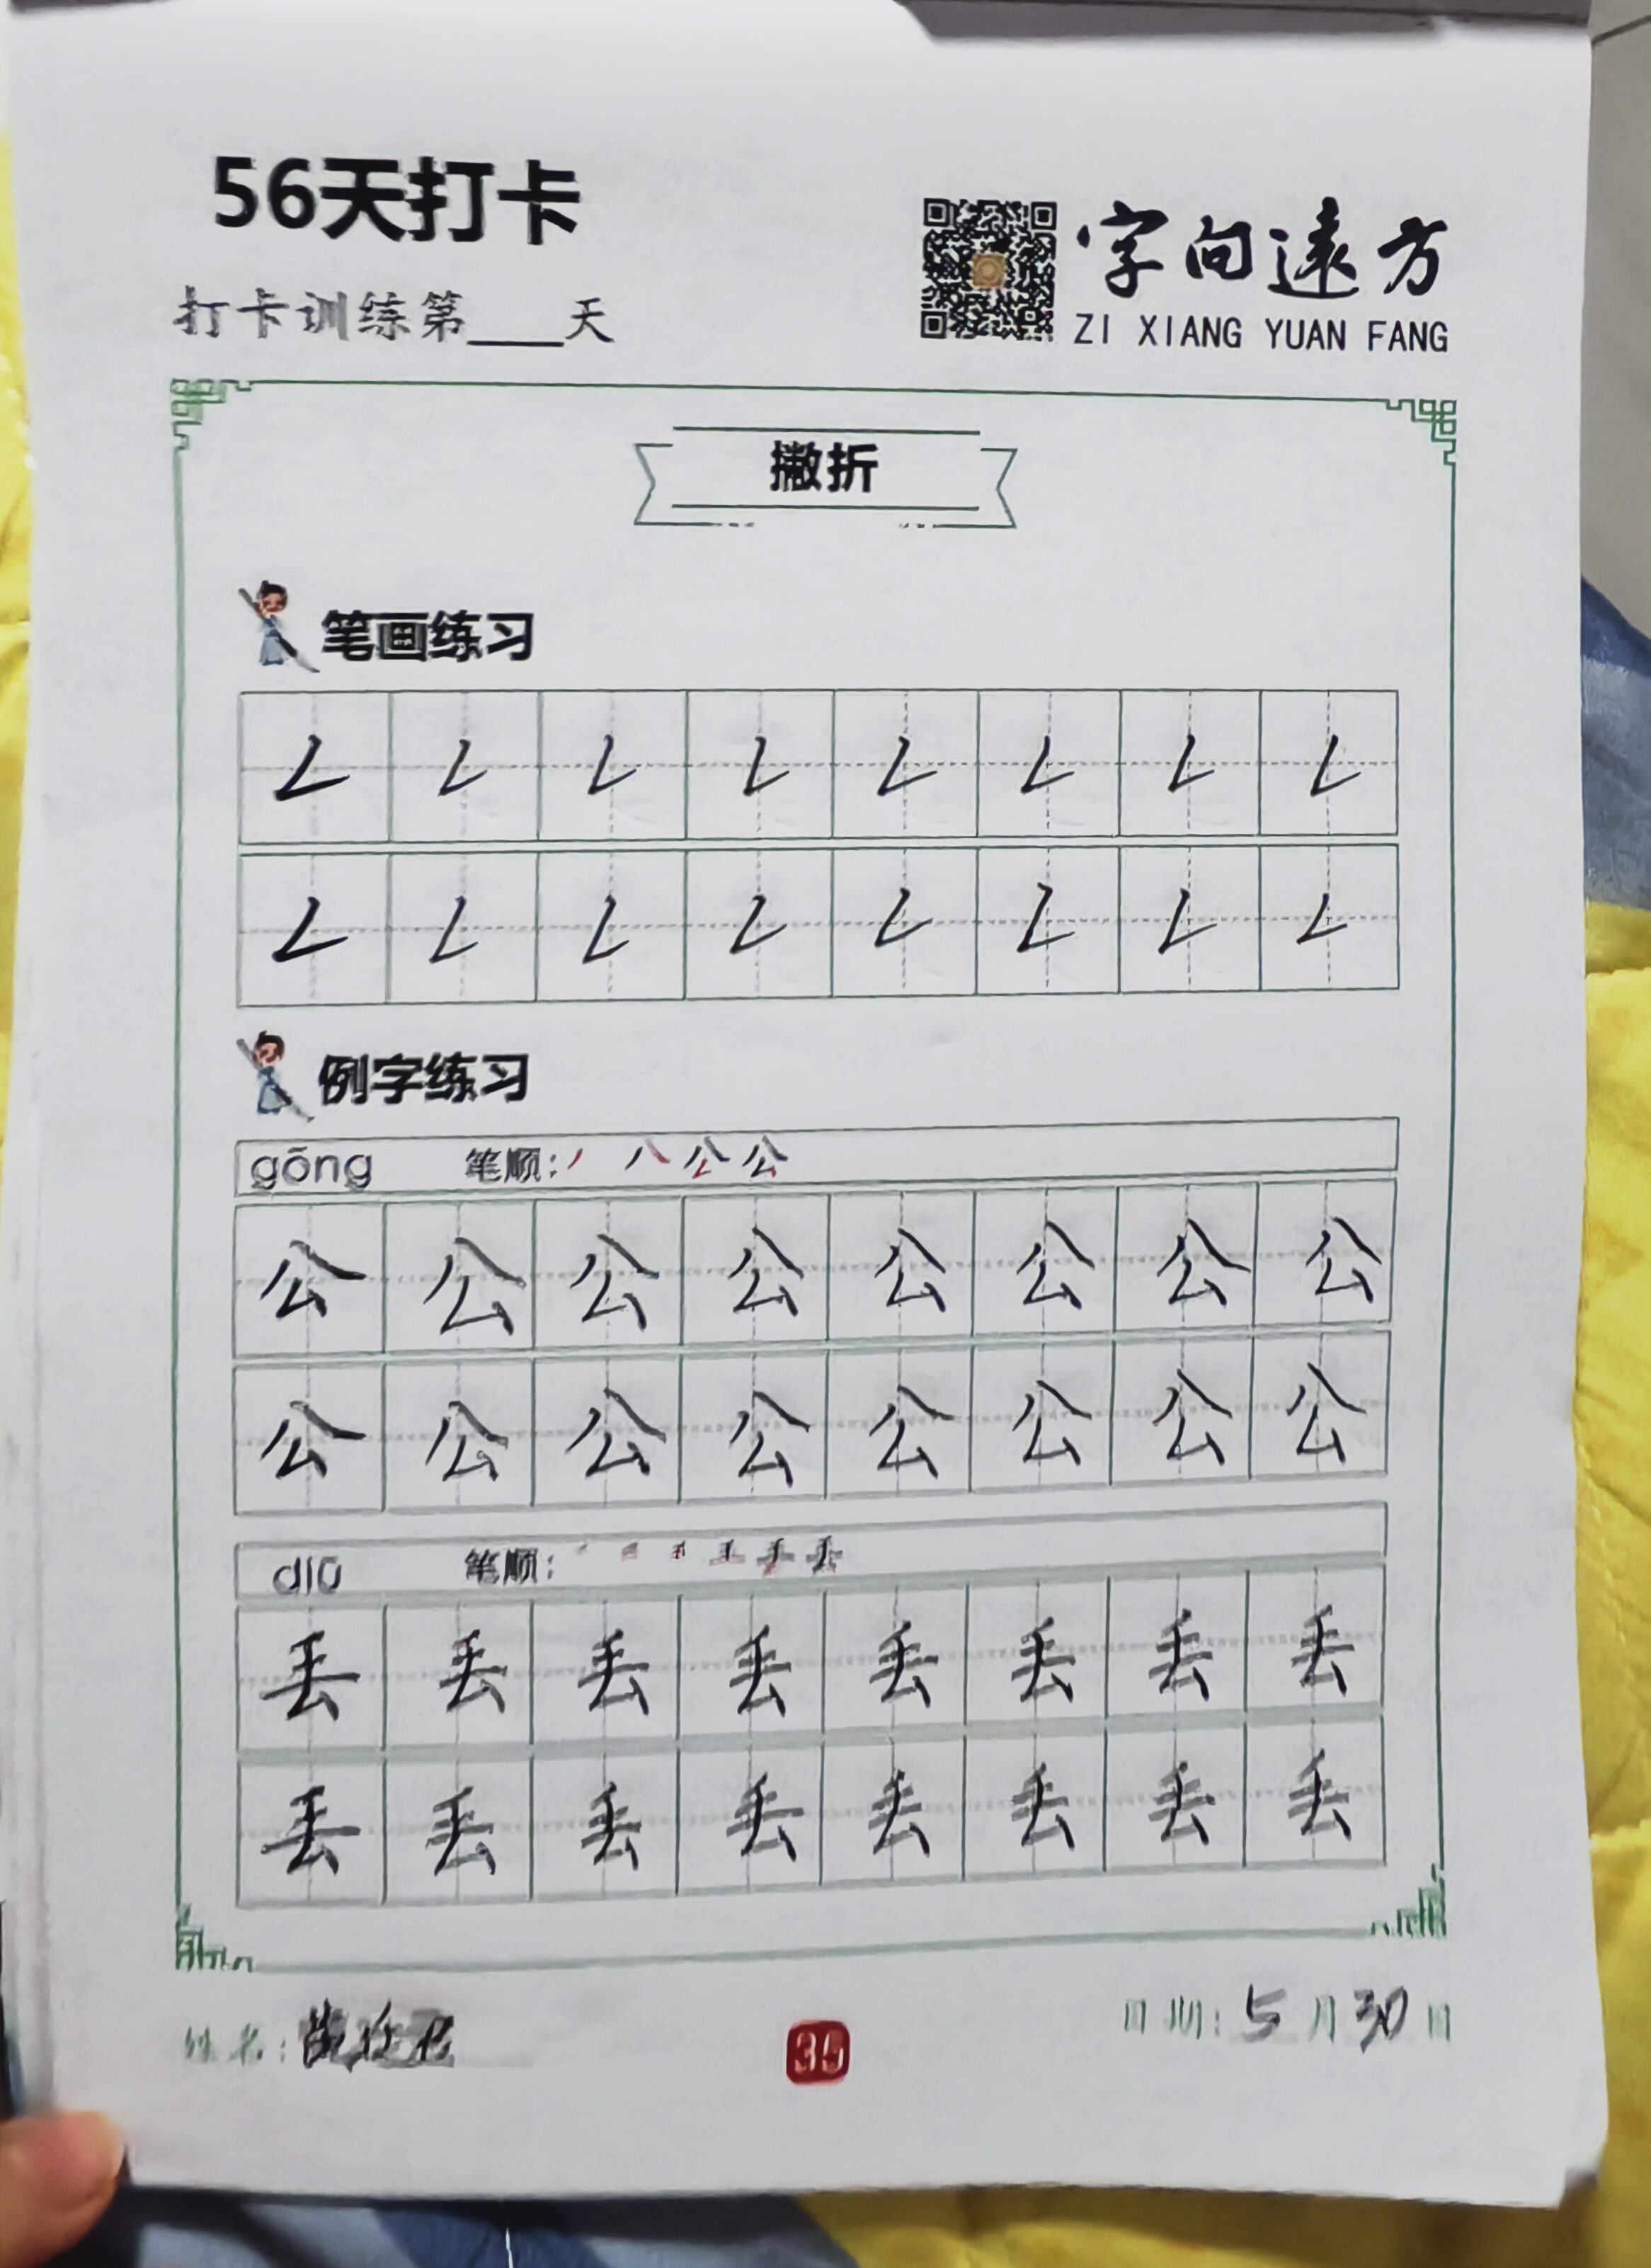 56天打卡
打卡训练第____天
字向遠方
ZI XIANG YUAN FANG
撇折
笔画练习
𠃋 𠃋 𠃋 𠃋 𠃋 𠃋 𠃋 𠃋
𠃋 𠃋 𠃋 𠃋 𠃋 𠃋 𠃋 𠃋
例字练习
gōng 笔顺:丿 八 公 公
公 公 公 公 公 公 公 公
公 公 公 公 公 公 公 公
diū 笔顺:
丢 丢 丢 丢 丢 丢 丢 丢
丢 丢 丢 丢 丢 丢 丢 丢
姓名:
日期:5月30日